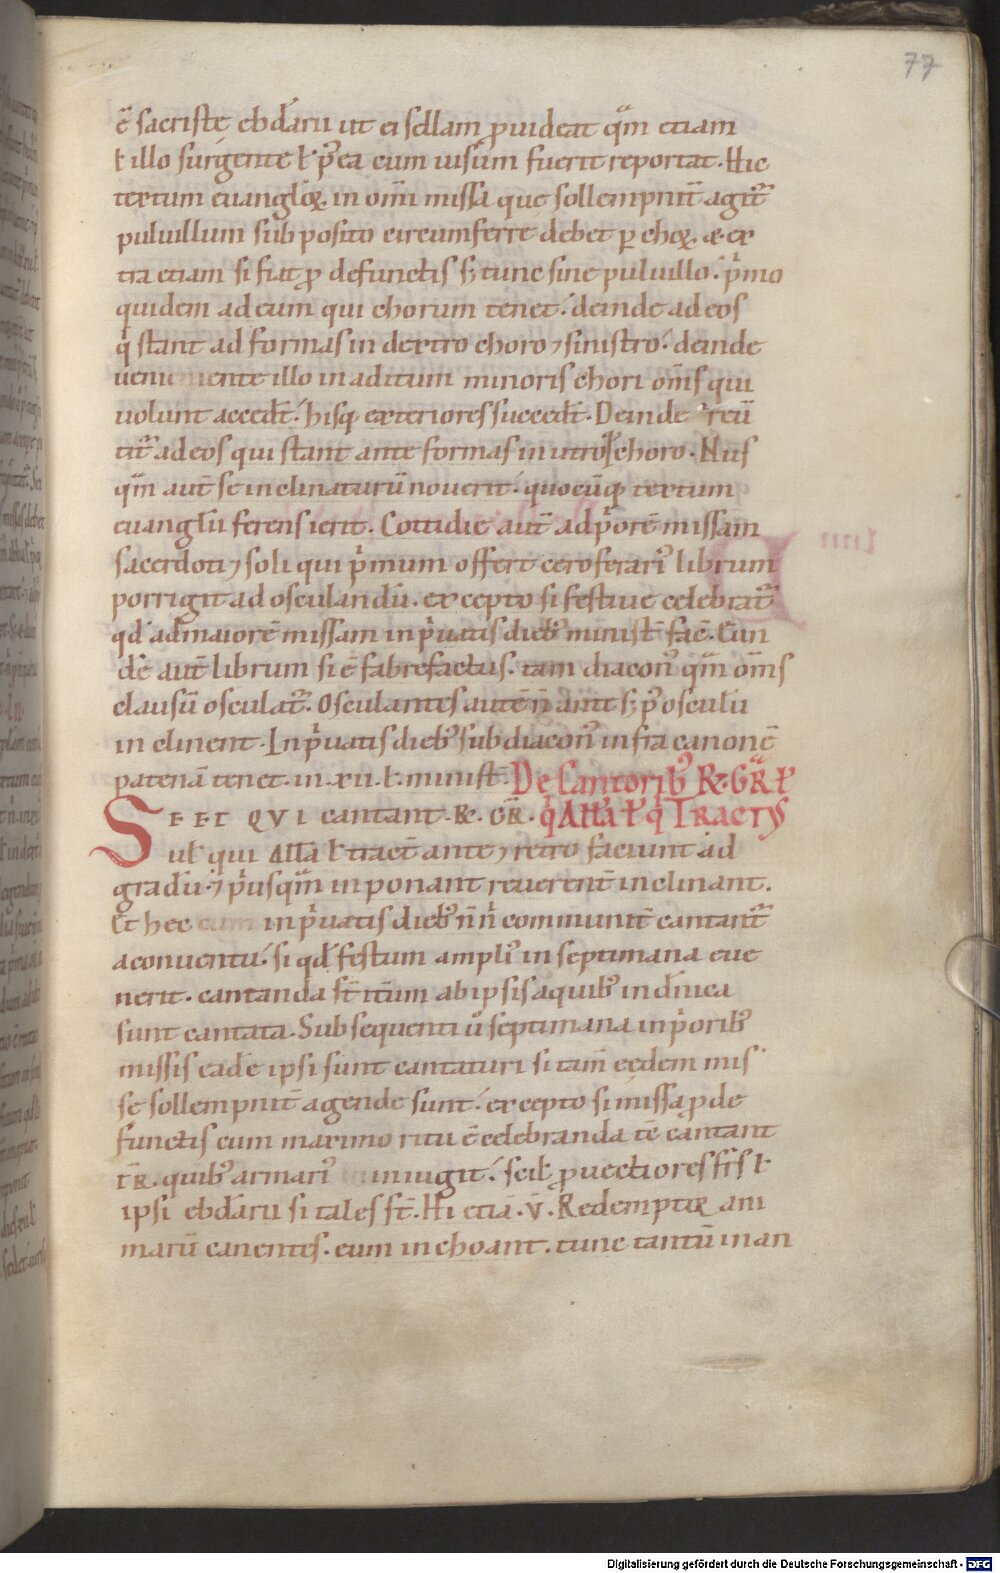 77
ē sacriste ebdãrii ut ei sellam ꝓuideat qͣm etiam
ł illo surgente ł p᷒ea cum uisum fuerit reportat. Hic
textum euangl̃oꝝ in om̄i missa que sollempnit̄ agit᷑
puluillum subposito circumferre debet ꝑ choꝝ. & ex
tra etiam si fiat ꝓ defunctis s; tunc sine puluillo. pͥmo
quidem ad eum qui chorum tenet. deinde ad eos
qͥ stant ad formas in dextro choro ⁊ sinistro. deinde
ueniente illo in aditum minoris chori om̄s qui
uolunt acced̄t. hisq; exteriores succed̄t. Deinde reu̅
tit᷑ ad eos qui stant ante formas in utroq; choro. Nus
qͣm aut̄ se inclinaturū nouerit. quocūq; textum
euanglii ferens ierit. Cottidie aut̄ ad pͥorē missam
sacerdoti ⁊ soli qui pͥmum offert ceroferari᷒ librum
porrigit ad osculandū. excepto si festiue celebrat᷑
qđ ad maiorē missam in pͥuatis dieb᷒ minist̄ fac̄. Eun
dē autē librum si ē fabrefactus. tam diacon᷒ qͣm om̄s
clausū osculat᷑. Osculantes autē ñ ante s; p᷒ osculū
inclinent. In pͥuatis dieb᷒ subdiacon᷒ infra canonē
patenā tenet. in .xii. ł. minist̄. De Cantorib᷒ R̷. GR̃. ł
SEET QVI cantant. R̷. GR̄. qͥ All̃a ł qͥ Tractus
uł qui All̃a ł tract̄ ante ⁊ retro faciunt ad
gradū. ⁊ pͥusqͣm inponant reuerent̄ inclinant.
Et hec in pͥuatis dieb᷒ n̄nͥ communit̄ cantant᷑
a conuentu. si qđ festum ampli᷒ in septimana eue
nerit. cantanda st̄ it̄um ab ipsis a quib᷒ in dn̄ica
sunt cantata. Subsequenti ů septimana in pͥorib᷒
missis eadē ipsi sunt cantaturi si tam̄ eedem mis
se sollempnit̄ agende sunt. excepto si missa ꝓ de
functis cum maximo ritu ē celebranda tē cantant
TR̄. quib᷒ armari᷒ iniugit. scił ꝓuectiores fr̄s ł
ipsi ebdãrii si tales st̄. Hi etiā. v̄. Redemptor ani
marū canentes. cum inchoant. tunc tantū in an
Digitalisierung gefördert durch die Deutsche Forschungsgemeinschaft - DFG